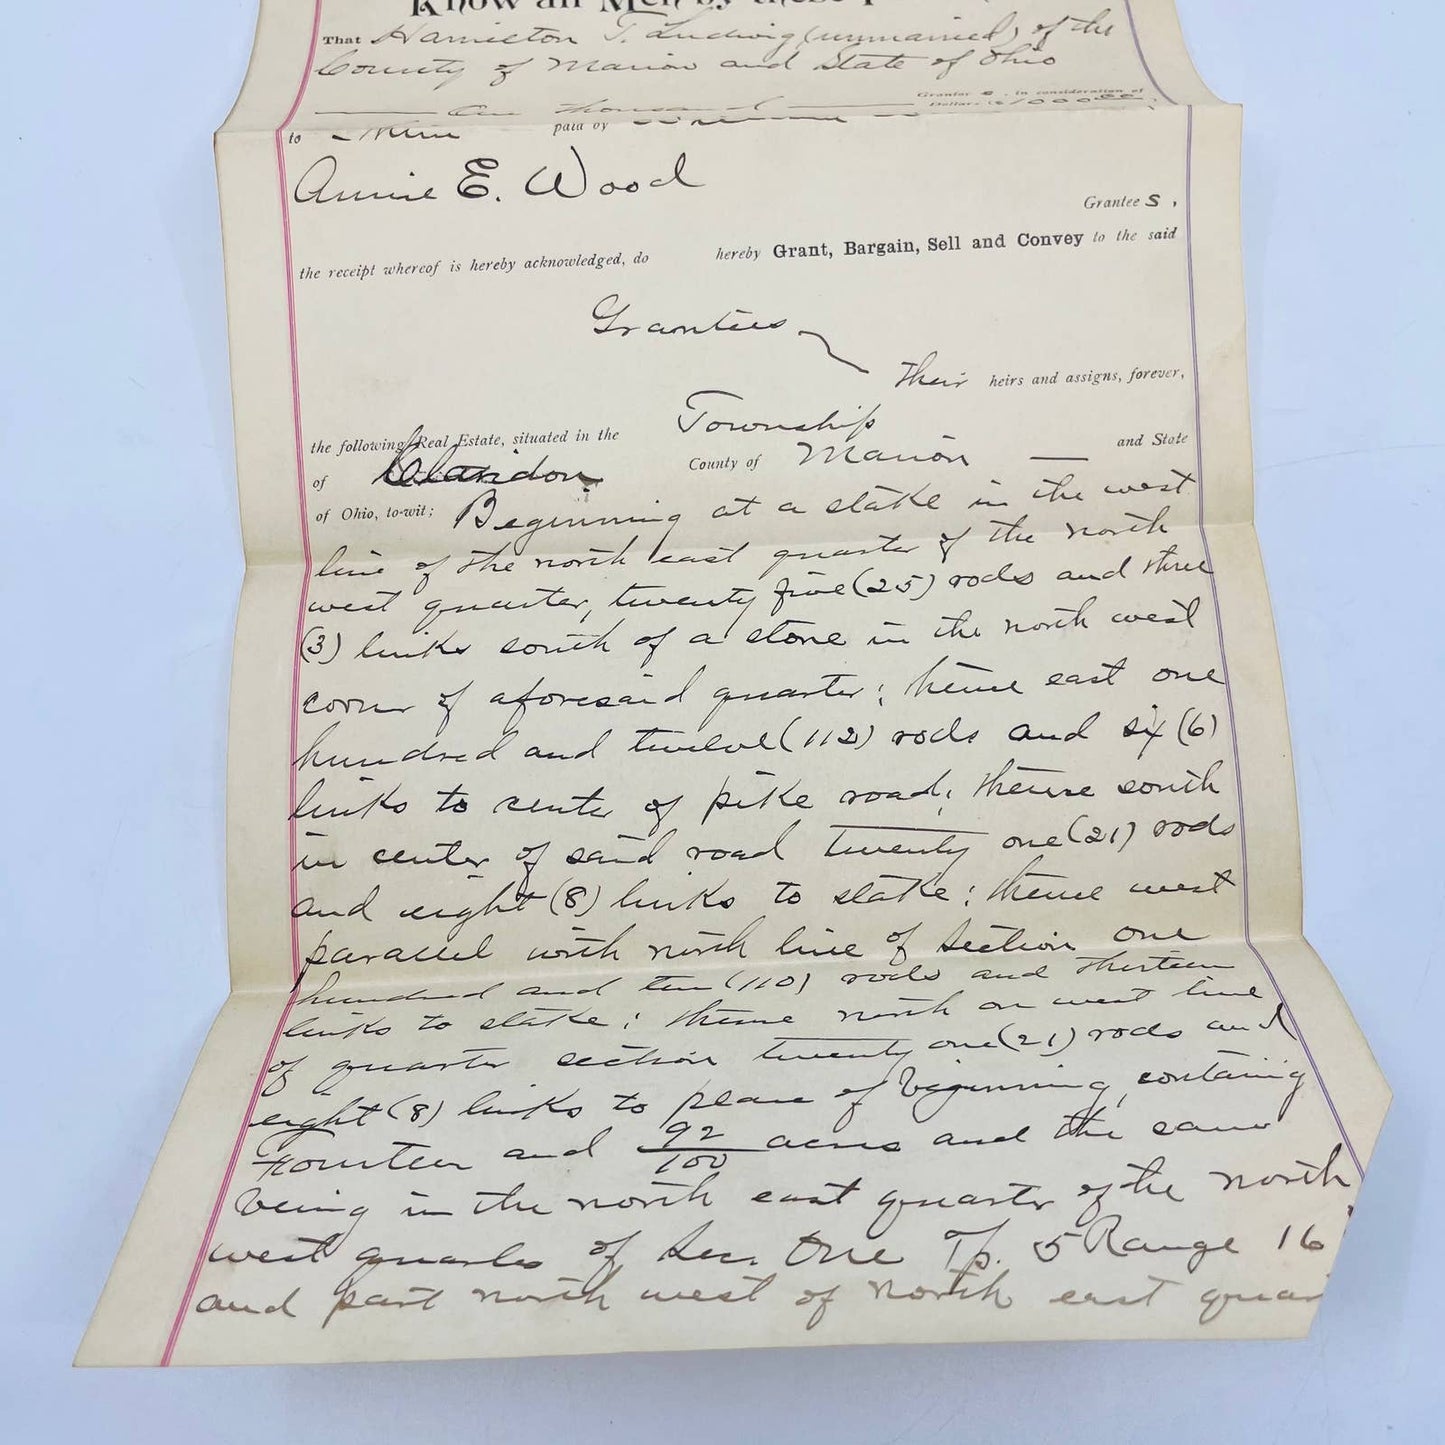 Know all Men by these
That Hamilton T. Ludwig (unmarried) of the
County of Marion and State of Ohio
Grantor, in consideration of
One thousand Dollars ($1000.00
to paid by
Annie E. Wood
Grantee s,
the receipt whereof is hereby acknowledged, do hereby Grant, Bargain, Sell and Convey to the said
Grantees
Their heirs and assigns, forever,
the following Real Estate, situated in the Township
of Claridon County of Marion and State
of Ohio, to-wit; Beginning at a stake in the west
line of the north east quarter of the north
west quarter, twenty five (25) rods and three
(3) links south of a stone in the north west
corner of aforesaid quarter; thence east one
hundred and twelve (112) rods and six (6)
links to center of pike road; thence south
in center of said road twenty one (21) rods
and eight (8) links to stake; thence west
parallel with north line of Section one
hundred and ten (110) rods and thirteen
links to stake; thence north on west line
of quarter section twenty one (21) rods and
eight (8) links to place of beginning, containing
Fourteen and 92/100 acres and the same
being in the north east quarter of the north
west quarter of Sec. One Tp. 5 Range 16
and part north west of north east quar